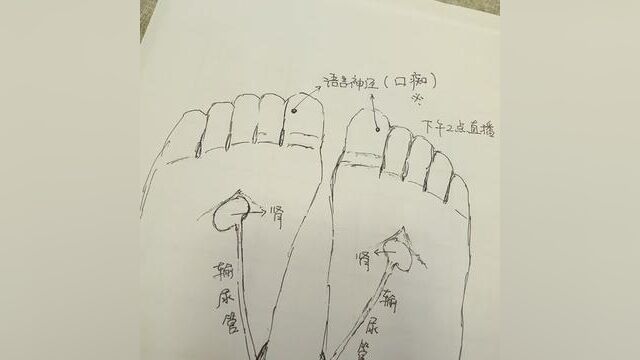 语言神经(口痴)
※
下午2点直播
肾
肾
输尿管
输尿管